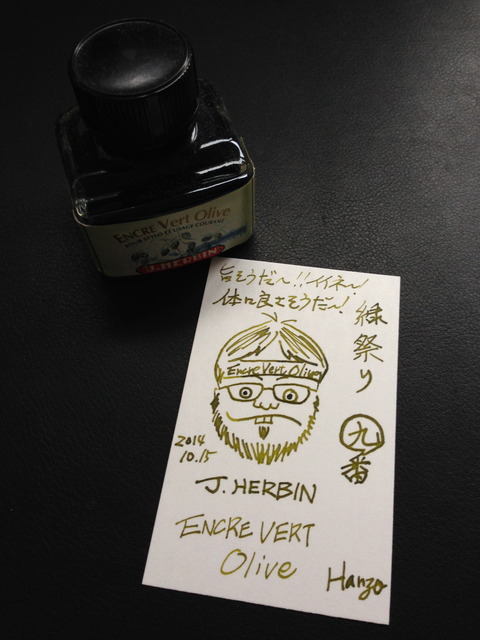 ENCRE Vert Olive
POUR STYLO ET USAGE COURANT
J.HERBIN
旨そうだ〜!!イイネ〜!
体に良さそうだ〜!
緑祭り
九番
Encre Vert Olive
2014
10.15
J. HERBIN
ENCRE VERT
Olive
Hanzo